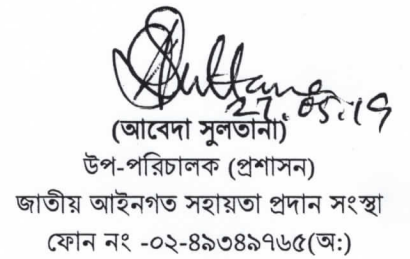 Sultana
27.05.19
(আবেদা সুলতানা)
উপ-পরিচালক (প্রশাসন)
জাতীয় আইনগত সহায়তা প্রদান সংস্থা
ফোন নং -০২-৪৯৩৪৯৭৬৫(অ:)